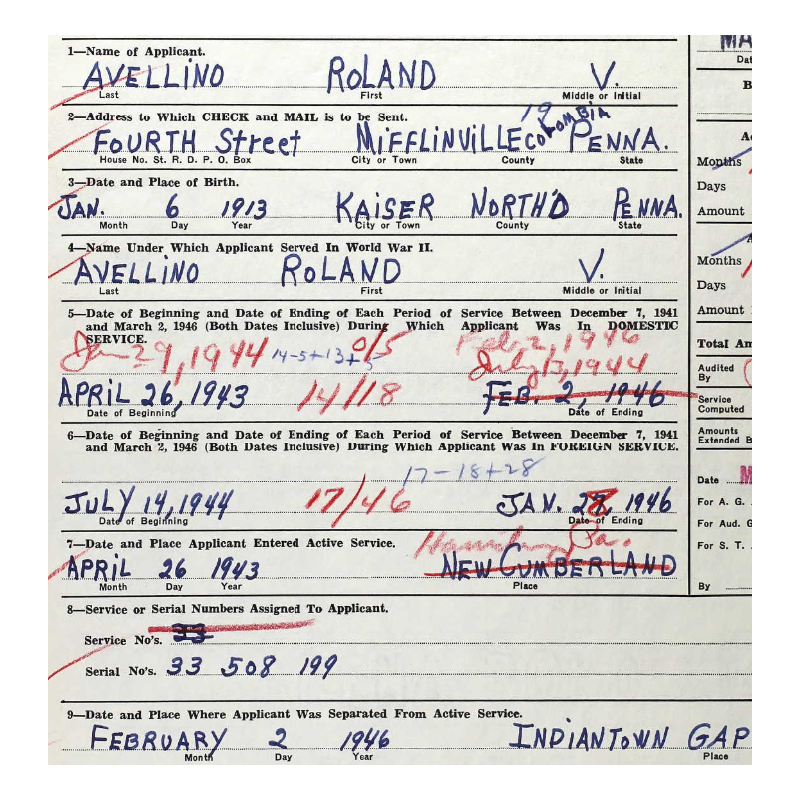 1—Name of Applicant.
AVELLINO ROLAND V.
Last First Middle or Initial
2—Address to Which CHECK and MAIL is to be Sent.
19
FOURTH Street MIFFLINVILLE COLOMBIA PENNA.
House No. St. R. D. P. O. Box City or Town County State
3—Date and Place of Birth.
JAN. 6 1913 KAISER NORTH'D PENNA.
Month Day Year City or Town County State
4—Name Under Which Applicant Served In World War II.
AVELLINO ROLAND V.
Last First Middle or Initial
5—Date of Beginning and Date of Ending of Each Period of Service Between December 7, 1941
and March 2, 1946 (Both Dates Inclusive) During Which Applicant Was In DOMESTIC
SERVICE.
Feb. 2, 1946
Jan 29, 1944 14-5+13+5 0/5 July 13, 1944
APRIL 26, 1943 14/18 FEB. 2, 1946
Date of Beginning Date of Ending
6—Date of Beginning and Date of Ending of Each Period of Service Between December 7, 1941
and March 2, 1946 (Both Dates Inclusive) During Which Applicant Was In FOREIGN SERVICE.
17-18+28
JULY 14, 1944 17/46 JAN. 28, 1946
Date of Beginning Date of Ending
7—Date and Place Applicant Entered Active Service.
Pa.
APRIL 26 1943 NEW CUMBERLAND
Month Day Year Place
8—Service or Serial Numbers Assigned To Applicant.
Service No's. 33
Serial No's. 33 508 199
9—Date and Place Where Applicant Was Separated From Active Service.
FEBRUARY 2 1946 INDIANTOWN GAP
Month Day Year Place
MA
Dat
B
A
Months
Days
Amount
A
Months
Days
Amount
Total Am
Audited
By
Service
Computed
Amounts
Extended B
Date M
For A. G.
For Aud. G
For S. T.
By